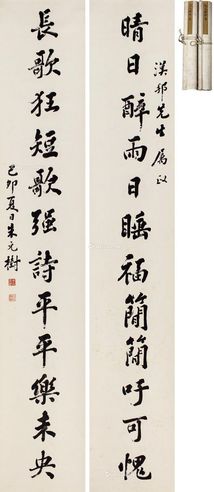 漢邦先生属政
晴日醉雨日睡福簡簡吁可愧
長歌狂短歌强詩平平樂未央
己卯夏日朱元樹